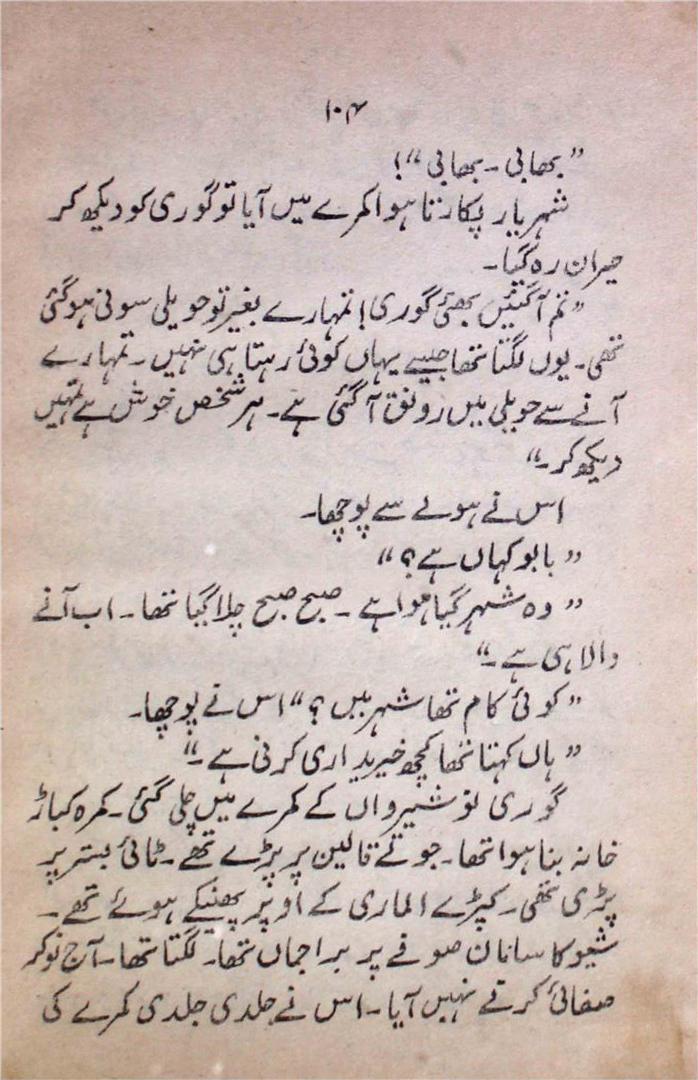 ۱۰۴
”بھابی ۔ بھابی“!
شہریار پکارتا ہوا کمرے میں آیا تو گوری کو دیکھ کر
حیران رہ گیا۔
”تم آگئیں بھئی گوری! تمہارے بغیر تو حویلی سونی ہوگئی
تھی۔ یوں لگتا تھا جیسے یہاں کوئی رہتا ہی نہیں ۔ تمہارے
آنے سے حویلی میں رونق آگئی ہے۔ ہر شخص خوش ہے تمہیں
دیکھ کر۔“
اس نے ہولے سے پوچھا۔
”بابو کہاں ہے؟“
”وہ شہر گیا ہوا ہے ۔ صبح صبح چلا گیا تھا۔ اب آنے
والا ہی ہے ۔“
”کوئی کام تھا شہر میں؟“ اس نے پوچھا۔
”ہاں کہتا تھا کچھ خریداری کرنی ہے ۔“
گوری نوشیرواں کے کمرے میں چلی گئی ۔ کمرہ کباڑ
خانہ بنا ہوا تھا۔ جوتے قالین پر پڑے تھے ۔ ٹائی بستر پر
پڑی تھی۔ کپڑے الماری کے اوپر پھینکے ہوئے تھے ۔
شیو کا سامان صوفے پر براجماں تھا۔ لگتا تھا۔ آج نوکر
صفائی کرنے نہیں آیا ۔ اس نے جلدی جلدی کمرے کی